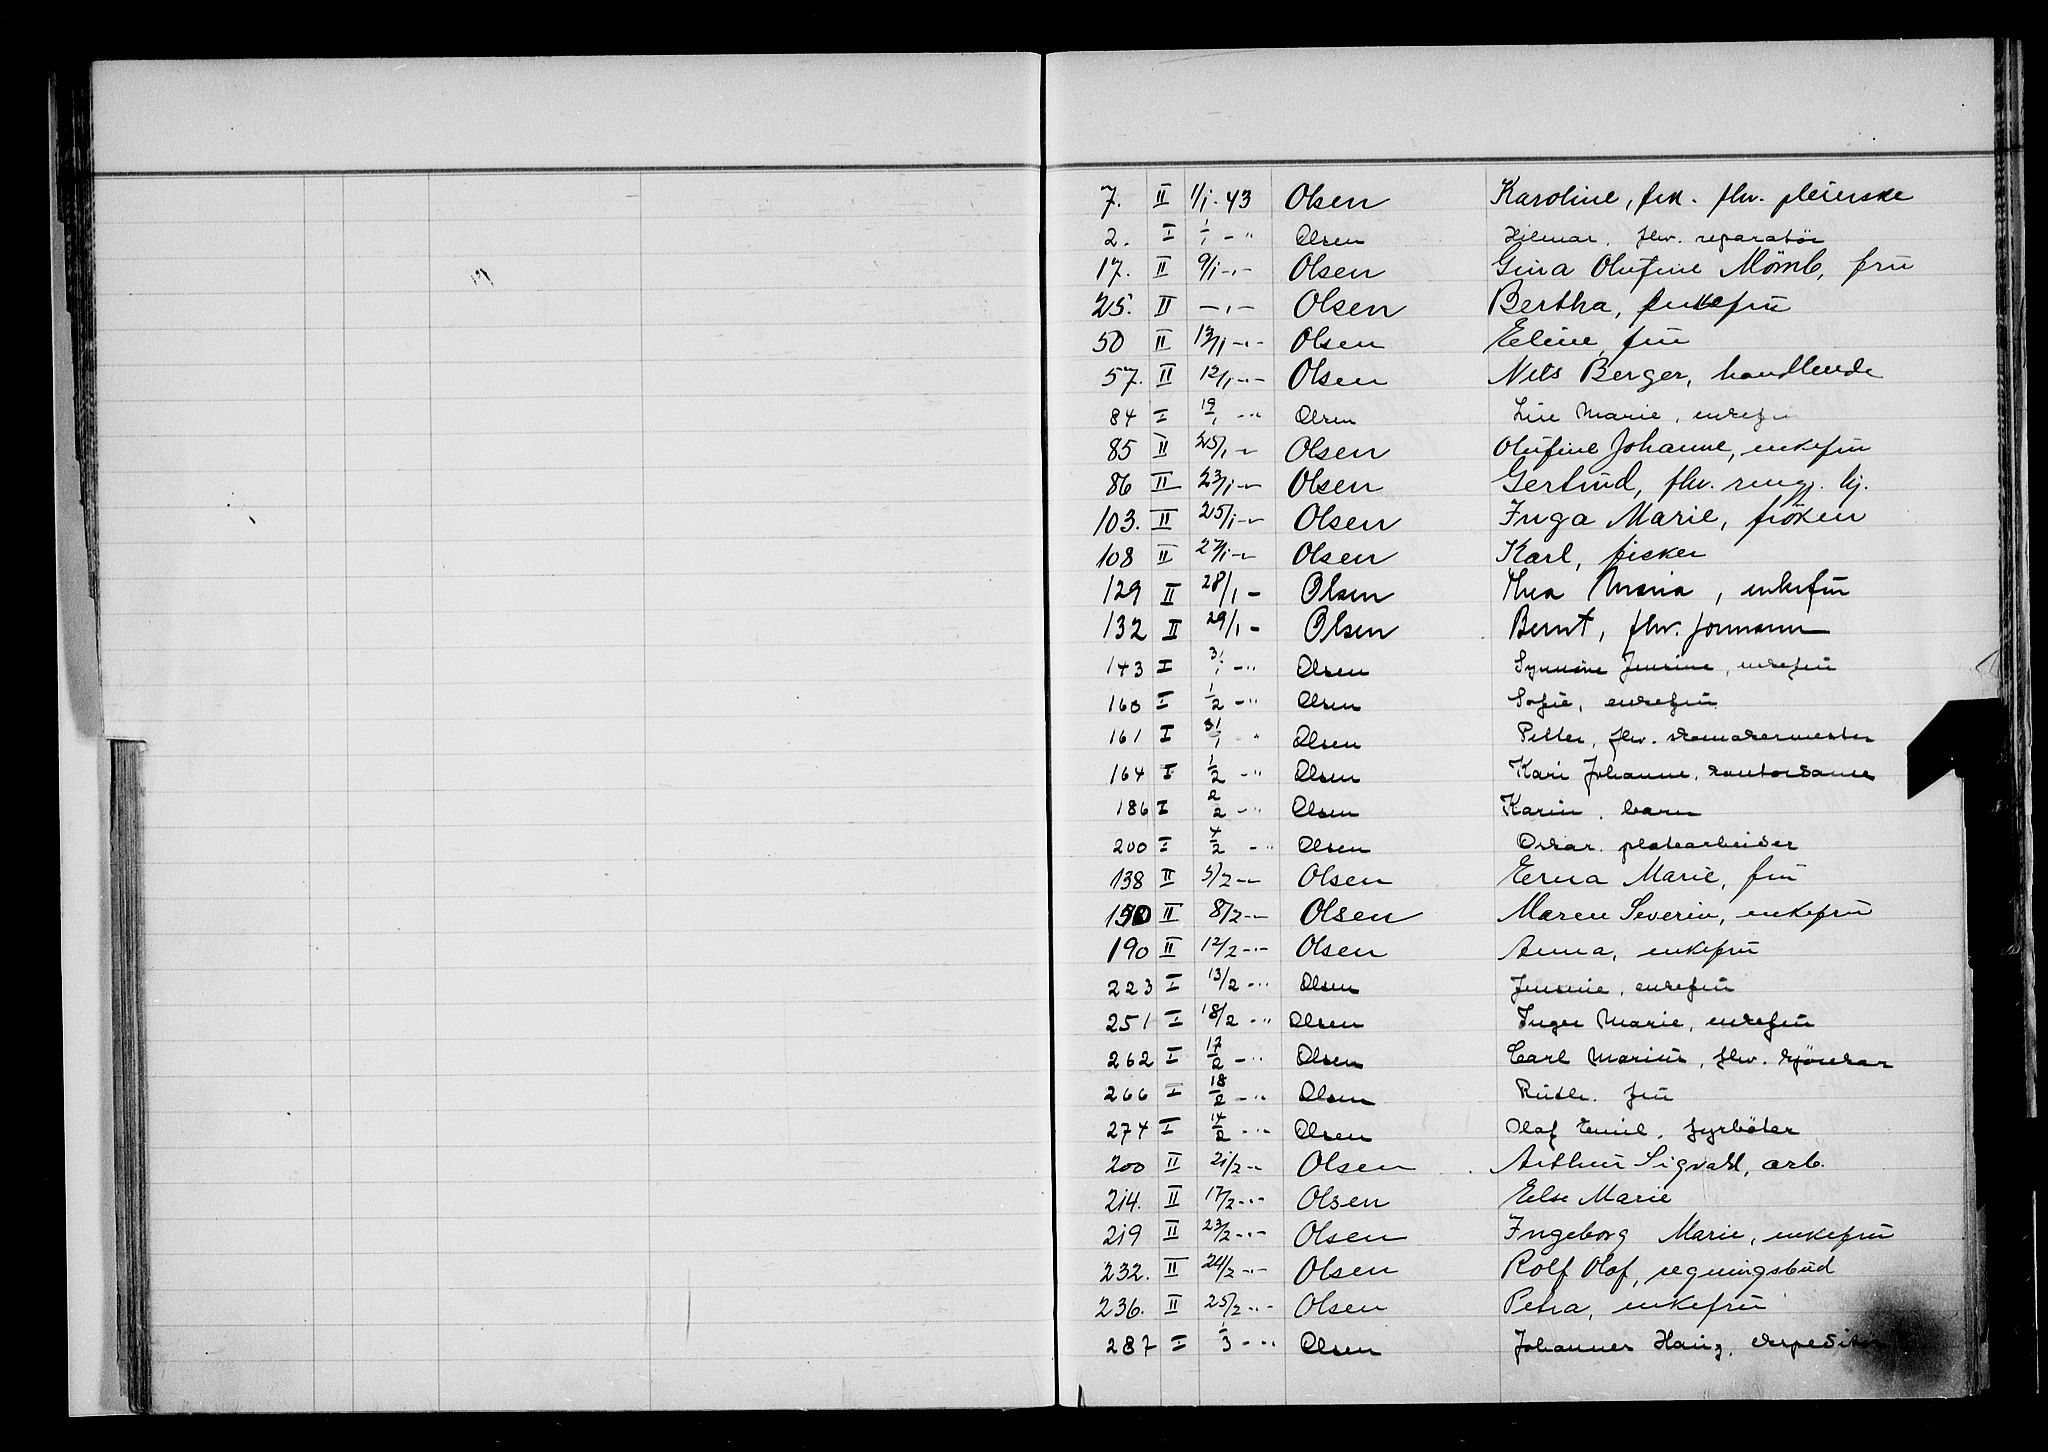 7. II 1/1-43 Olsen Karoline, frk. fhv. pleierske
2. I 1/1 - " Olsen Hilmar. fhv. reparatör
17. II 9/1 - " - Olsen Gina Olufine Mömb, fru
25. II - " - Olsen Bertha, enkefru
50 II 13/1 - " - Olsen Eline, fru
57. II 12/1 - " - Olsen Nils Berger, handlende
84 I 19/1 - " Olsen Line Marie, enkefru
85 II 25/1 - " - Olsen Olufine Johanne, enkefru
86 II 23/1 - " - Olsen Gertrud, fhv. rengj. hj.
103. II 25/1 - " - Olsen Inga Marie, fröken
108 II 27/1 - " - Olsen Karl, fisker
129 II 28/1 - Olsen Thea Maria, enkefru
132 II 29/1 - Olsen Bernt, fhv. formann
143 I 31/1 - " Olsen Synnöve Jensine, enkefru
160 I 1/2 - " Olsen Sofie, enkefru
161 I 31/1 " Olsen Petter, fhv. skomakermester
164 I 1/2 - " Olsen Kari Johanne, kontordame
186 I 2/2 - " Olsen Karin. barn
200 I 4/2 - " Olsen Oskar. platearbeider
138 II 5/2 - " - Olsen Erna Marie, fru
150 II 8/2 - " - Olsen Maren Severin, enkefru
190 II 12/2 - " - Olsen Anna, enkefru
223 I 13/2 - " Olsen Jensine, enkefru
251 I 18/2 - " Olsen Inger Marie, enkefru
262 I 17/2 - " Olsen Carl Marius, fhv. kjörekar
266 I 18/2 - " Olsen Ruth. fru
274 I 14/2 - " Olsen Olaf Emil. fyrböter
200 II 21/2 - " - Olsen Arthur Sigvald, arb.
214. II 17/2 - " - Olsen Else Marie
219 II 23/2 - " - Olsen Ingeborg Marie, enkefru
232. II 24/2 - " - Olsen Rolf Olaf, regningsbud
236. II 25/2 - " - Olsen Petra, enkefru
287 I 1/3 - " Olsen Johannes Haug. ekspeditör